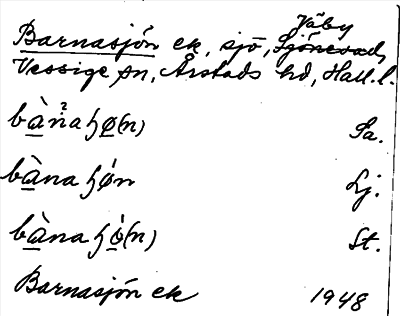 Väby
Barnasjön ek, sjö, Sjönevads
Vessige sn, Årstads hd, Hall. l.
bànaɧø(n) Sa.
bànaɧǿn Lj.
bànaɧǿ(n) St.
Barnasjön ek 1948